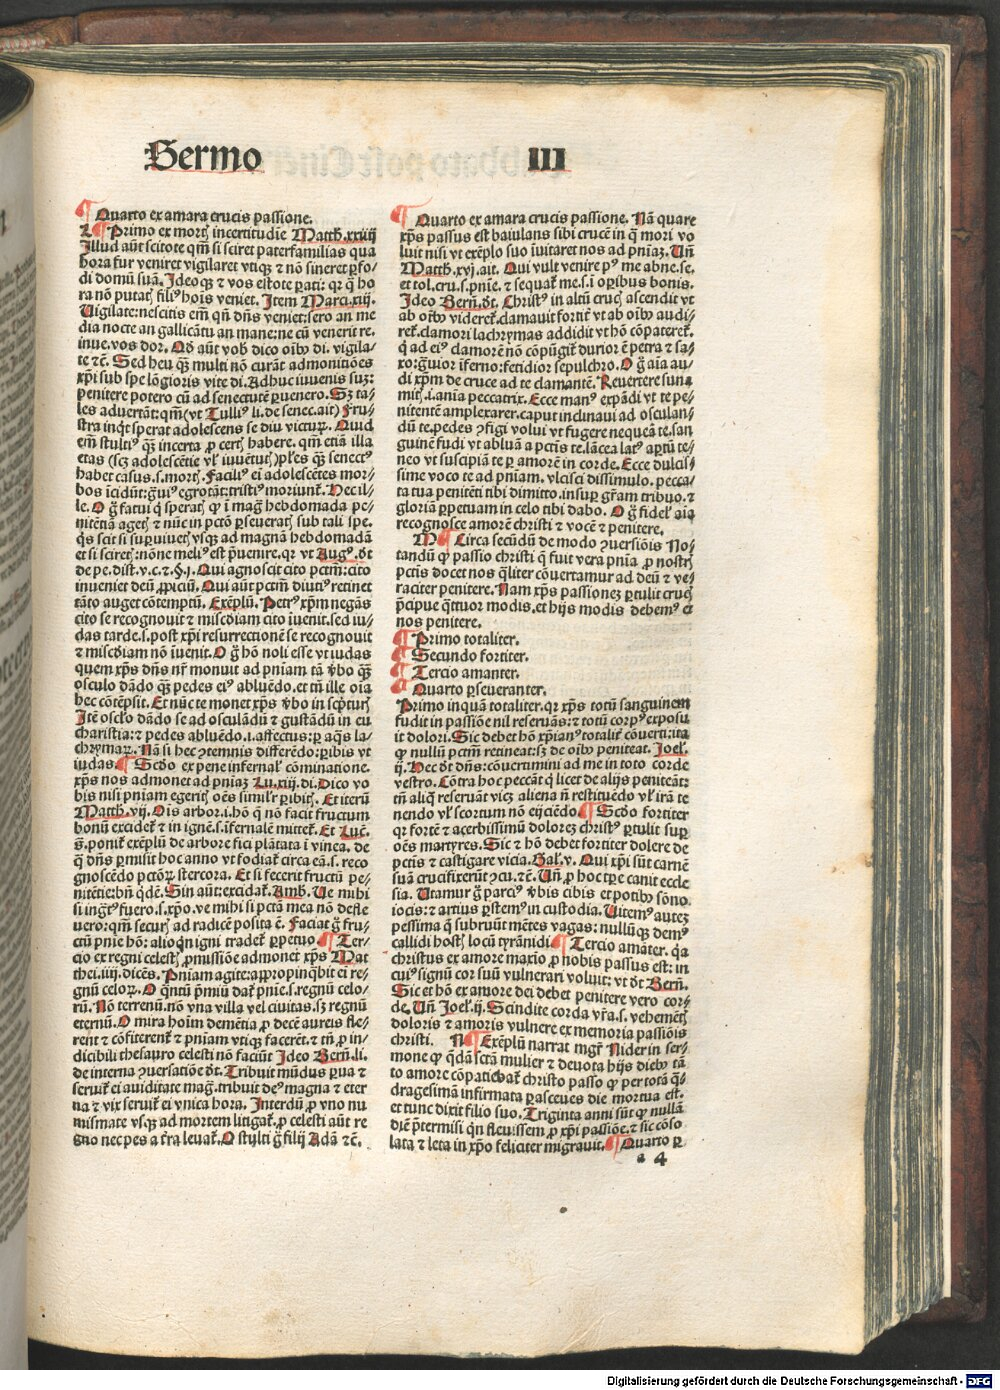 Sermo III
¶ Quarto ex amara crucis passione.
L ¶ Primo ex mortꝭ incertitudīe Matth.xxiiij
Illud aūt scitote qm̄ si sciret paterfamilias qua
hora fur veniret vigilaret vtiqꝫ ⁊ nō sineret ꝑfo⸗
di domū suā. Ideoqꝫ ⁊ vos estote ꝑati: qꝛ q̄ ho
ra nō putatꝭ filiꝰ hoīs veniet. Item Marci.xiij.
Uigilate: nescitis em̄ qn̄ dn̄s veniet: sero an me
dia nocte an gallicātu an mane: ne cū venerit re.
inue. vos dor. Qd̄ aūt vob̄ dico oīb̄ di. vigila⸗
te ⁊c̄. Sed heu qꝫ multi nō curāt admonitiōes
xp̄i sub spe lōgioris vite di. Adhuc iuuenis suꝫ:
penitere potero cū ad senectutē ꝑuenero. Sꝫ ta⸗
les aduertāt: qm̄ (vt Tulliꝰ li. de senec. ait) Fru⸗
stra inq̄t sperat adolescens se diu victuꝝ. Quid
em̄ stultiꝰ qꝫ̄ incerta ꝓ certꝭ habere. qm̄ etiā illa
etas (scꝫ adolescētie vl̓ iuuētutꝭ) pl̓es qꝫ̄ senectꝰ
habet casus. s. mortꝭ. Faciliꝰ ei adolescētes mor⸗
bos īcidūt: g̓uiꝰ egrotāt: tristiꝰ moriunt̄. Hec il⸗
le. O g̓ fatui q̄ speratꝭ ꝙ ī mag̓ hebdomada pe⸗
nitētiā agetꝭ ⁊ nūc in pctō ꝑseueratꝭ sub tali spe.
qs̄ scit si suꝑuiuetꝭ vsqꝫ ad magnā hebdomadā
et si sciretꝭ: nōne meliꝰ est p̄uenire. qꝛ vt Augꝰ. dt̄
de pe. dist. v. c. ⁊. §. j. Qui agnoscit cito pctm̄: cito
inueniet deū ꝓpiciū. Qui aūt pctm̄ diutiꝰ retinet
tāto auget cōtemptū. Exēplū. Petrꝰ xp̄m negās
cito se recognouit ⁊ mīcdiam cito īuenit. sed iu⸗
das tarde. s. post xp̄i resurrectionē se recognouit
⁊ mīcdiam nō īuenit. O g̓ hō noli esse vt iudas
quem xp̄s dn̄s nr̄ monuit ad pniam tā v̓bo qꝫ̄
osculo dādo qꝫ̄ pedes eiꝰ abluēdo. et tn̄ ille oīa
hec cōtēpsit. Et nūc te monet xp̄s v̓bo in scp̄turꝭ
Itē osclo dādo se ad osculādū ⁊ gustādū in eu
charistia: ⁊ pedes abluēdo. i. affectus: ꝑ aq̄s la⸗
chrymaꝝ. Nā si hec ↄtemnis differēdo: ꝑibis vt
iudas. ¶ Scd̓o ex pene infernal̓ cōminatione.
xp̄s nos admonet ad pniaꝫ Lu.xiij. di. Dico vo
bis nisi pniam egeritꝭ oēs simil̓r ꝑibitꝭ. Et iterū
Matth.vij. Ois arbor. i. hō q̄ nō facit fructum
bonū excidet̄ ⁊ in ignē. s. īfernalē mittet̄. Et Luc̄.
§. ponit exēplū de arbore fici plātata ī vinea. de
q̄ dn̄s ꝑmisit hoc anno vt fodiat̄ circa eā. s. reco
gnoscēdo pctōꝝ stercora. Et si fecerit fructū pe⸗
nitētie: bn̄ qd̄ē. Sin aūt: excidat̄. Amb. Ue mihi
si ingtꝰ fuero. s. xp̄o. ve mihi si pctā mea nō defle
uero: qm̄ securꝭ ad radicē posita ē. Faciat g̓ fru⸗
ctū pnie hō: alioqn̄ igni tradet̄ ꝑpetuo ¶ Ter⸗
cio ex regni celestꝭ ꝓmissiōe admonet xp̄s Mat
thei.iiij. dicēs. Pniam agite: apꝓpinq̄bit ei re⸗
gnū celoꝝ. O q̄ntū p̄miū dat̄ pnie. s. regnū celo⸗
rū. Nō terrenū. nō vna villa vel ciuitas. sꝫ regnū
eternū. O mira hoīm demētia ꝓ decē aureis fle⸗
rent ⁊ cōfiterent̄ ⁊ pniam vtiqꝫ faceret̄. ⁊ tn̄ ꝓ in⸗
dicibili thesauro celesti nō faciūt Ideo Bern̄. li.
de interna ↄuersatiōe dt̄. Tribuit mūdus ꝑua ⁊
seruit̄ ei auiditate mag̓. tribuit deꝰ magna ⁊ eter
na ⁊ vix seruit̄ ei vnica hora. Interdū ꝓ vno nu
mismate vsqꝫ ad mortem litigat̄. ꝓ celesti aūt re
gno nec pes a tr̄ra leuat̄. O stulti g̓ filij Adā ⁊c̄.
¶ Quarto ex amara crucis passione. Nā quare
xp̄s passus est baiulans sibi crucē in q̄ mori vo
luit nisi vt exēplo suo iuitaret nos ad pniaꝫ. Un̄
Matth.xvj. ait. Qui vult venire pꝰ me abne. se.
et tol. cru. s. pnie. ⁊ sequat̄ me. s. ī oꝑibus bonis.
Ideo Bern̄. dt̄. Christꝰ in altū crucꝭ ascendit vt
ab oīb̄ videret̄. clamauit fortit̓ vt ab oīb̄ audi⸗
ret̄. clamori lachrymas addidit vt hō cōpateret̄.
q̄ ad eiꝰ clamorē nō cōpūgit̄ durior ē petra ⁊ sa⸗
xo: g̓uior iferno: fetidior sepulchro. O g̓ aīa au⸗
di xp̄m de cruce ad te clamantē. Reuertere suna
mitꝭ. i. anīa peccatrix. Ecce manꝰ expādi vt te pe⸗
nitentē amplexarer. caput inclinaui ad osculan⸗
dū te. pedes ↄfigi volui vt fugere nequeā te. san
guinē fudi vt abluā a pctīs te. lācea latꝰ aꝑtū te⸗
neo vt suscipiā te ꝑ amorē in corde. Ecce dulcis⸗
sime voco te ad pniam. vlcisci dissimulo. pecca⸗
ta tua penitēti tibi dimitto. insuꝑ gr̄am tribuo. ⁊
gloriā ꝑpetuam in celo tibi dabo. O g̓ fidel̓ aīa
recognosce amorē christi ⁊ vocē ⁊ penitere.
M ¶ Circa secūdū de modo ↄuersiōnis No⸗
tandū ꝙ passio christi q̄ fuit vera pnia ꝓ nostrꝭ
pctīs docet nos q̄liter cōuertamur ad deū ⁊ ve⸗
raciter penitere. Nam xp̄s passionez ꝑtulit crucꝭ
p̄cipue q̄ttuor modis. et hijs modis debemꝰ ⁊
nos penitere.
¶ Primo totaliter.
¶ Secundo fortiter.
¶ Tercio amanter.
¶ Quarto ꝑseueranter.
Primo inquā totaliter. qꝛ xp̄s totū sanguinem
fudit in passiōe nil reseruās: ⁊ totū corpꝰ exposu
it dolori. Sic debet hō xp̄ianꝰ totalit̓ cōuerti: ita
ꝙ nullū pctm̄ retineat: sꝫ de oīb̄ peniteat. Joel̓.
ij. Hec dt̄ dn̄s: cōuertimini ad me in toto corde
vestro. Cōtra hoc peccāt q̄ licet de alijs peniteāt:
tn̄ aliq̄ reseruāt vicꝫ aliena n̄ restituēdo vl̓ irā te
nendo vl̓ scortum nō eijciēdo ¶ Scd̓o fortiter
qꝛ fortē ⁊ acerbissimū dolorez christꝰ ꝑtulit suꝑ
oēs martyres. Sic ⁊ hō debet fortiter dolere de
pctīs ⁊ castigare vicia. Gal̓.v. Qui xp̄i sūt carnē
suā crucifixerūt ↄcu. ⁊c̄. Un̄ ꝓ hoc tp̄e canit eccle
sia. Utamur g̓ parciꝰ v̓bis cibis et potib̄ sōno
iocis: ⁊ artius ꝑstemꝰ in custodia. Uitemꝰ autez
pessima q̄ subruūt mētes vagas: nullūqꝫ demꝰ
callidi hostꝭ locū tyrānidi ¶ Tercio amāter. q̄a
christus ex amore maxīo ꝓ nobis passus est: in
cuiꝰ signū cor suū vulnerari voluit: vt dt̄ Bern̄.
Sic et hō ex amore dei debet penitere vero cor⸗
de. Un̄ Joel̓.ij. Scindite corda vr̄a. s. vehemētꝭ
doloris ⁊ amoris vulnere ex memoria passiōis
christi. N ¶ Exēplū narrat mgr̄ Nider in ser⸗
mone ꝙ qd̄ā sctā mulier ⁊ deuota hijs dieb̄ tā
to amore cōpatiebat̄ christo passo ꝙ per totā q̄⸗
dragesimā infirmata ꝑasceues die mortua est.
et tunc dixit filio suo. Triginta anni sūt ꝙ nullā
diē p̄termisi qn̄ fleuissem ꝓ xp̄i passiōe. ⁊ sic cōso
lata ⁊ leta in xp̄o feliciter migrauit. ¶ Quarto ꝑ
a 4
Digitalisierung gefördert durch die Deutsche Forschungsgemeinschaft - DFG